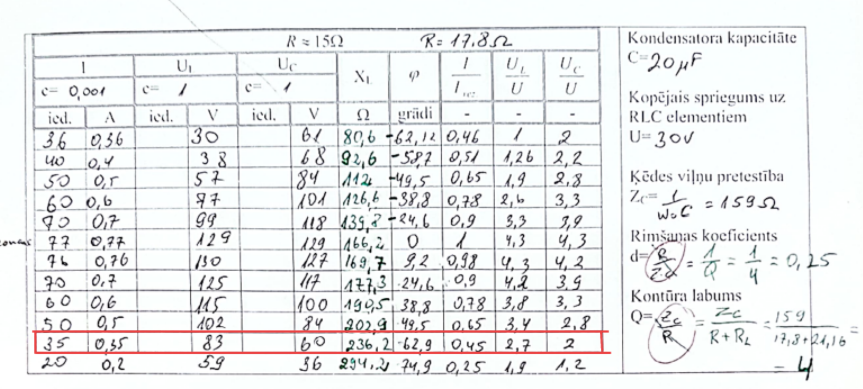 R ≈ 15Ω R = 17,8 Ω
I U_L U_C X_L φ I/I_rez U_L/U U_C/U
c= 0,001 c= 1 c= 1
ied. A ied. V ied. V Ω grādi - - -
36 0,36 30 61 80,6 -62,12 0,46 1 2
40 0,4 38 68 92,6 -58,7 0,51 1,26 2,2
50 0,5 57 84 112 -49,5 0,65 1,9 2,8
60 0,6 77 101 126,6 -38,8 0,78 2,6 3,3
70 0,7 99 118 139,8 -24,6 0,9 3,3 3,9
77 0,77 129 129 166,2 0 1 4,3 4,3
76 0,76 130 127 169,7 9,2 0,98 4,3 4,2
70 0,7 125 117 177,3 24,6 0,9 4,2 3,9
60 0,6 115 100 190,5 38,8 0,78 3,8 3,3
50 0,5 102 84 202,9 49,5 0,65 3,4 2,8
35 0,35 83 60 236,2 62,9 0,45 2,7 2
20 0,2 59 36 294,2 74,9 0,25 1,9 1,2
Kondensatora kapacitāte
C= 20 μF
Kopējais spriegums uz
RLC elementiem
U= 30V
Ķēdes viļņu pretestība
Z_C= 1/ω₀C = 159 Ω
Rimšanas koeficients
d= R/Z_C = 1/Q = 1/4 = 0,25
Kontūra labums
Q= Z_C/R = Z_C/R+R_L = 159/17,8+21,16 =
= 4